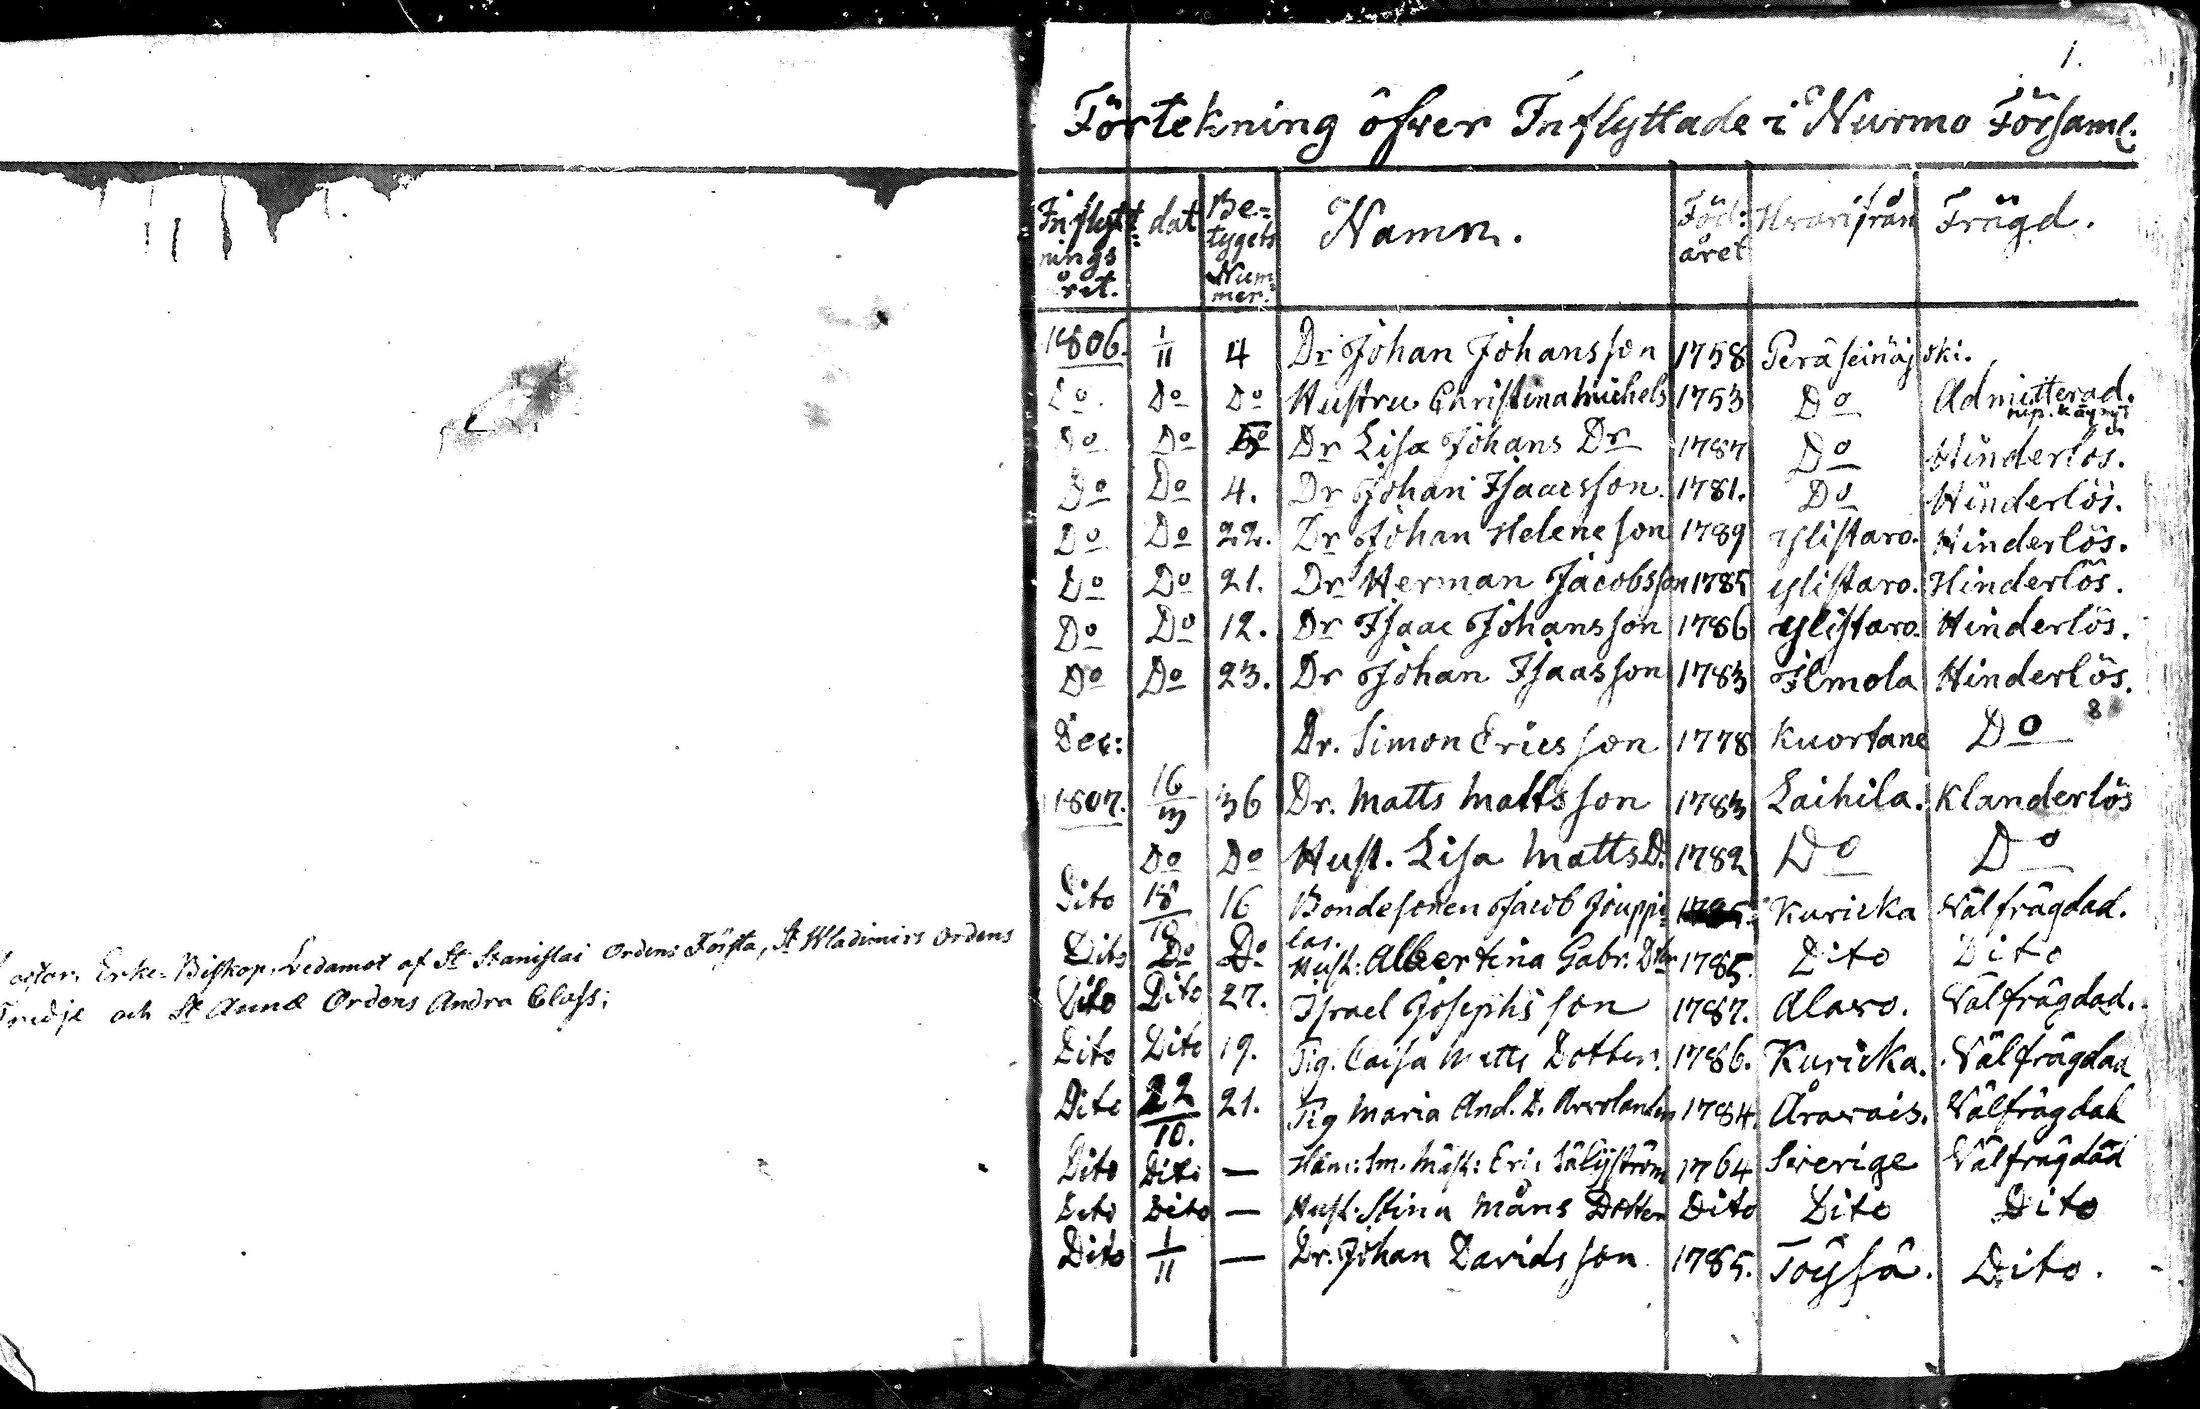 Erke-Biskop, Ledamot af St Stanislai Ordens Första, St Wladimirs Ordens
Tredje och St Annæ Ordens Andra Class;
1.
Förtekning öfver Inflyttade i Nurmo Församl.
Inflytt-nings året. dat Be-tygets Num-mer. Namn. Föd: året Hvarifrån Frägd.
1806. 1/11 4 Dr Johan Johansson 1758 Peräseinäjoki.
Do. Do Do Hustru Christina Michels 1753 Do Admitterad.
Do Do Do Dr Lisa Johans Dr 1787 Do Hinderlös.
Do Do 4. Dr Johan Isaacsson. 1781. Do Hinderlös.
Do Do 22. Dr Johan Heleneson 1789 Ylistaro. Hinderlös.
Do Do 21. Dr Herman Jacobsson 1785 Ylistaro. Hinderlös.
Do Do 12. Dr Isaac Johansson 1786 Ylistaro. Hinderlös.
Do Do 23. Dr Johan Isaasson 1783 Ilmola Hinderlös.
8
Dec: Dr. Simon Ericsson 1778 Kuortane Do
1807. 16/III 36 Dr. Matts Mattsson 1783 Laihila. Klanderlös
Do Do Hust. Lisa Matts D. 1782 Do Do
Dito 18/10 16 Bondesonen Jacob Jouppi- Kuricka Välfrägdad.
las.
Dito Do Do Hust: Albertina Gabr. Dter 1785. Dito Dito
Dito Dito 27. Israel Josephsson 1787. Alavo. Välfrägdad.
Dito Dito 19. Pig. Caisa Matts Dotter. 1786. Kuricka. Välfrägdad
Dito 22/10. 21. Pig Maria And. D. 1784. Åravais. Välfrägdad
Dito Dito — Eric 1764 Sverige Välfrägdad
Dito Dito — Hust. Stina Måns Dotter Dito Dito Dito
Dito 1/11 — Dr. Johan Davidsson 1785. Töysä. Dito.